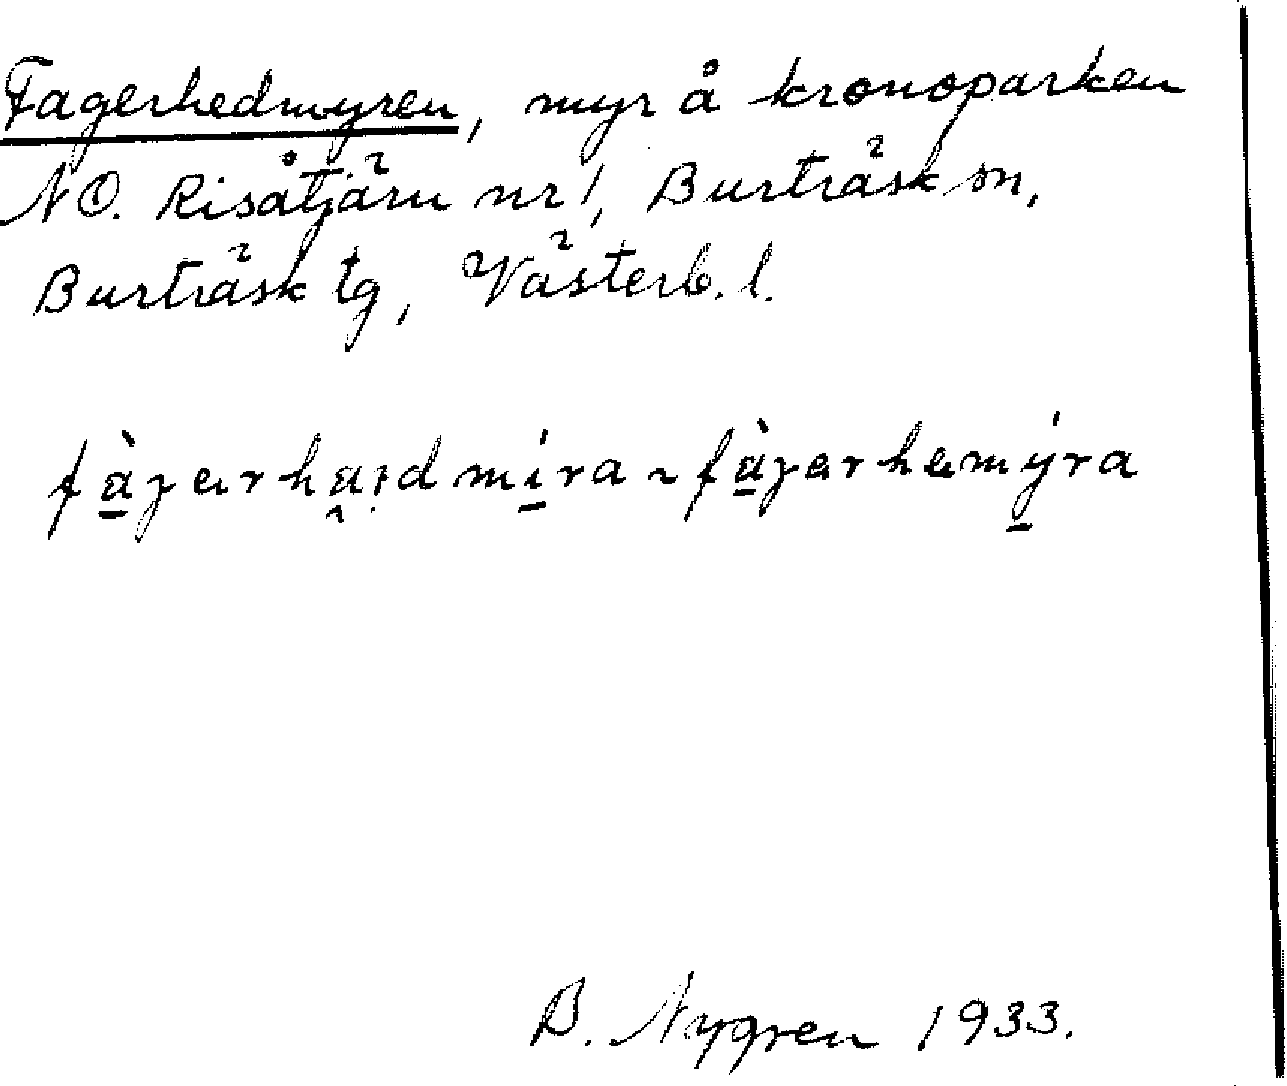 Fagerhedmyren, myr å kronoparken
NO. Risåtjärn nr 1, Burträsk sn,
Burträsk tg, Västerb. l.
fàgerhaidmíra ~ fàgerhemýra
B. Nygren 1933.